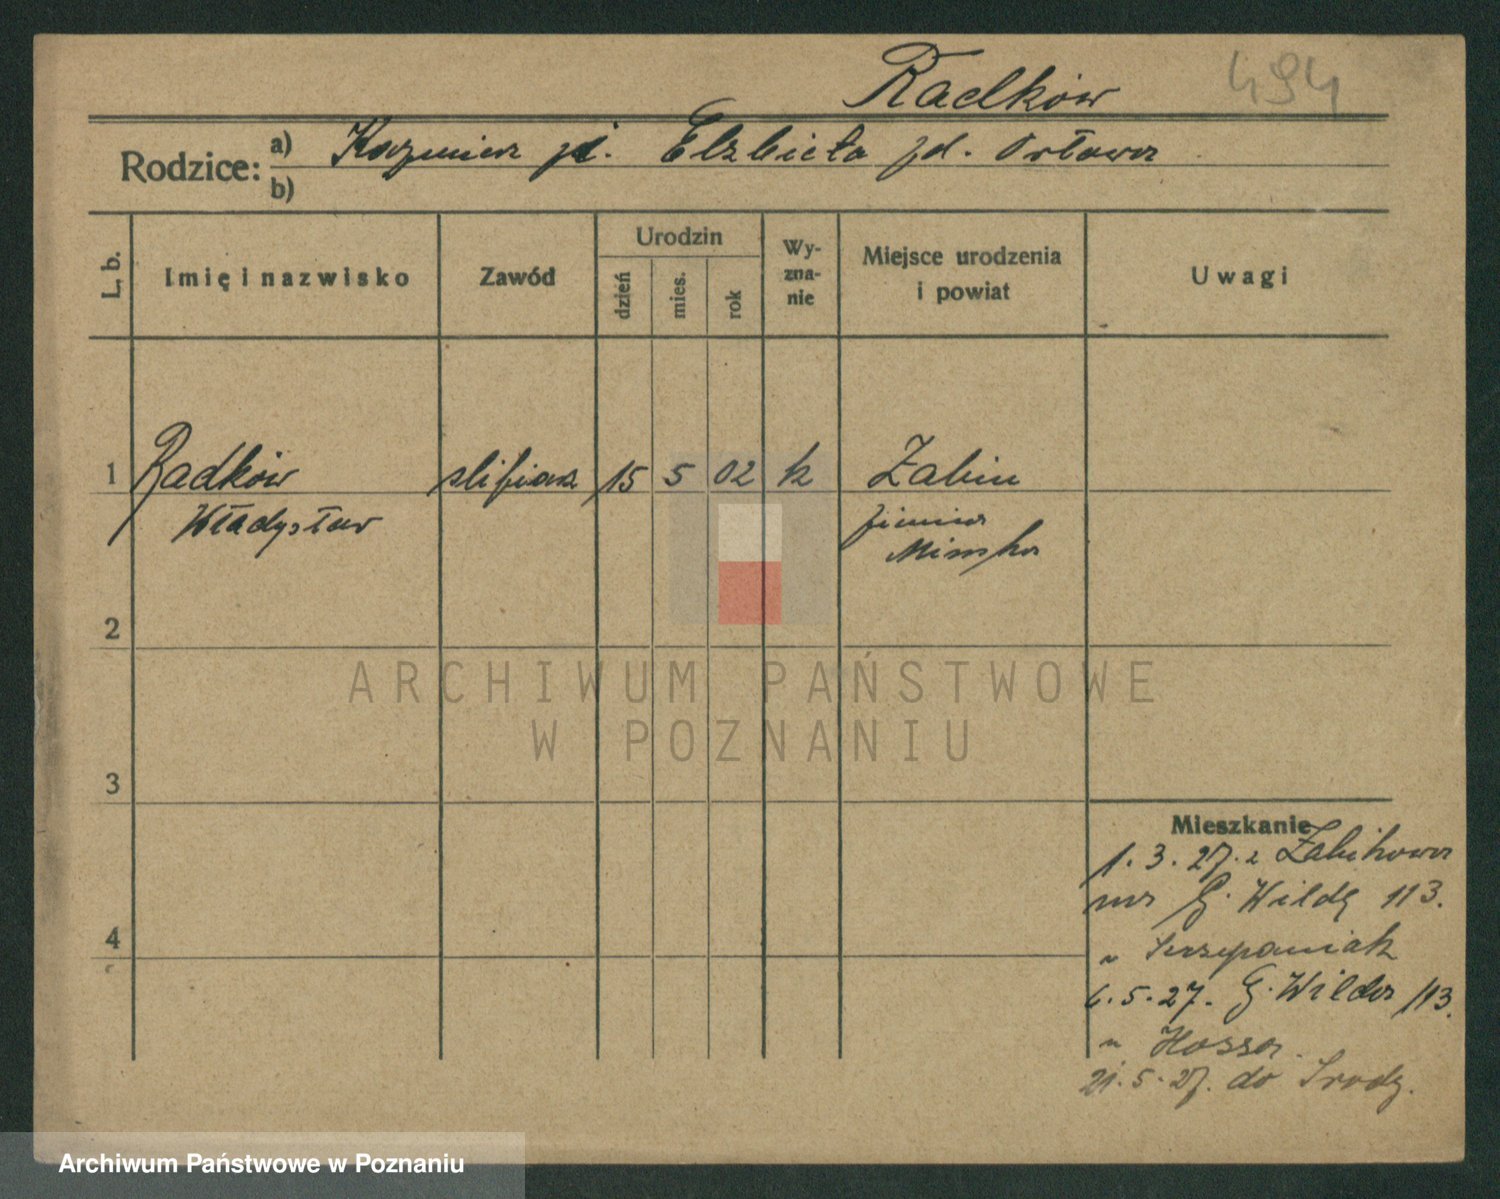 Radków 494
Rodzice: a) Kazimierz i Elżbieta zd. Orłowa
b)
L. b. Imię i nazwisko Zawód Urodzin dzień mies. rok Wyznanie Miejsce urodzenia i powiat Uwagi
1 Radków slifiarz 15 5 02 k Zabin
Władysław ziemia
Minska
2
3
4
Mieszkanie
1.3.27. z Zabikowa
na G. Wildę 113.
u Szczepaniak
6.5.27. G. Wilda 113.
u Hossa
21.5.27. do Srody.
ARCHIWUM PAŃSTWOWE
W POZNANIU
Archiwum Państwowe w Poznaniu